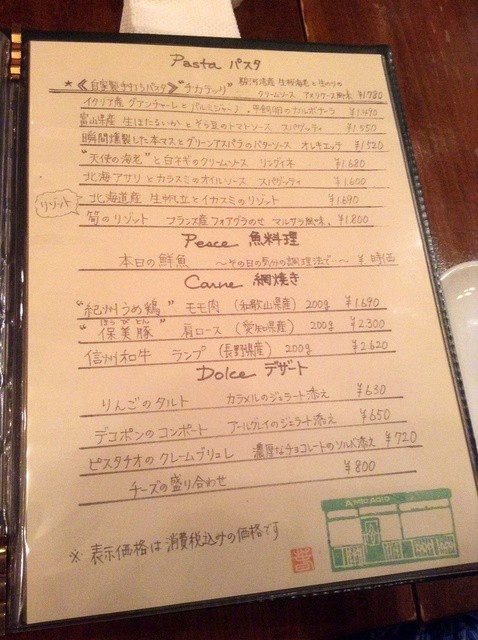 Pasta パスタ
★《自家製手打ちパスタ》"チカテッリ" 駿河湾産 生桜海老と生のりのクリームソース アメリケーヌ風味 ¥1.780
イタリア産 グアンチャーレとパルミジャーノ、平飼卵のカルボナーラ ¥1.490
富山県産 生ほたるいかとそら豆のトマトソース スパゲッティ ¥1.550
瞬間燻製した本マスとグリーンアスパラのバターソース オレキエッテ ¥1.520
"天使の海老"と白ネギのクリームソース リングイネ ¥1.680
北海アサリとカラスミのオイルソース スパゲッティ ¥1.600
リゾット
北海道産 生がにとイカスミのリゾット ¥1.690
筍のリゾット フランス産フォアグラのせ マルサラ風味 ¥1.800
Pesce 魚料理
本日の鮮魚 ～その日の気分の調理法で～ ¥.時価
Carne 網焼き
"紀州うめ鶏" モモ肉 (和歌山県産) 200g ¥1.690
"保美豚" 肩ロース (愛知県産) 200g ¥2.300
ほうびとん
信州和牛 ランプ (長野県産) 200g ¥2.620
Dolce デザート
りんごのタルト カラメルのジェラート添え ¥630
デコポンのコンポート アールグレイのジェラート添え ¥650
ピスタチオのクレームブリュレ 濃厚なチョコレートのソルベ添え ¥720
チーズの盛り合わせ ¥800
※ 表示価格は消費税込みの価格です